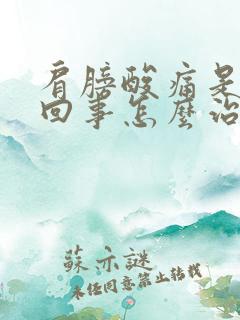 肩膀酸痛是
回事怎麼治
蘇亦謎
未经同意禁止转载